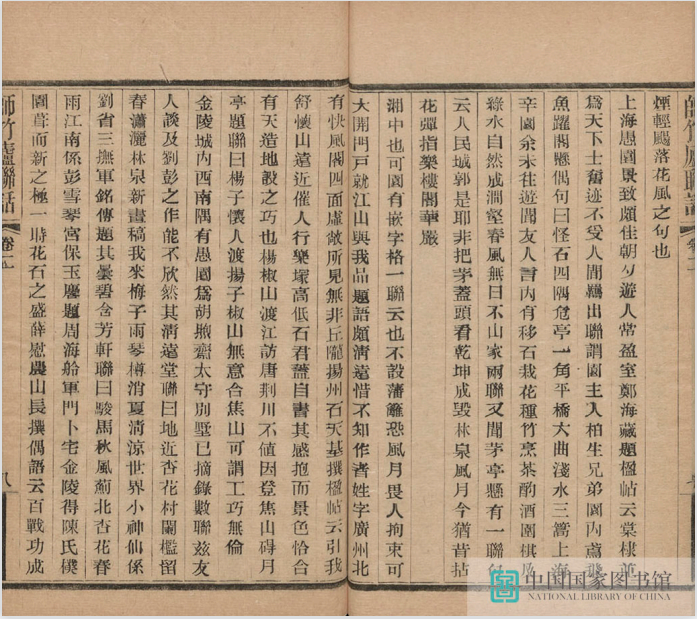 師竹廬聯話
煙輕颺落花風之句也
上海愚園景致頗佳朝夕遊人常盈室鄭海藏題楹帖云棠棣華
爲天下士奮迹不受人間羈出聯謂園主人柏生兄弟園內鳶飛
魚躍閣懸偶句曰怪石四隅危亭一角平橋大曲淺水三篙上海
辛園余未往遊聞友人言內有移石栽花種竹烹茶酌酒圍棋及
綠水自然成澗壑春風無日不山家兩聯又聞茅亭懸有一聯句
云人民城郭是耶非把茅蓋頭看乾坤成毀林泉風月今猶昔拈
花彈指樂樓閣華嚴
湘中也可園有嵌字格一聯云也不設藩籬恐風月畏人拘束可
大開門戶就江山與我品題語頗清遠惜不知作者姓字廣州北
有快風閣四面虛敞所見無非丘隴揚州石天基撰楹帖云引我
舒懷山遠近催人行樂塚高低石君蓋自書其感抱而景色恰合
有天造地設之巧也楊椒山渡江訪唐荆川不値因登焦山碍月
亭題聯曰楊子懷人渡揚子椒山無意合焦山可謂工巧無倫
金陵城內西南隅有愚園爲胡煦齋太守別墅已摘錄數聯茲友
人談及劉彭之作能不欣然其淸遠堂聯曰地近杏花村闌檻留
春瀟灑林泉新畫稿我來梅子雨琴樽消夏淸涼世界小神仙係
劉省三撫軍銘傳題其曇碧含芳軒聯曰駿馬秋風薊北杏花春
雨江南係彭雪琴宮保玉麐題周海舲軍門卜宅金陵得陳氏僕
園葺而新之極一時花石之盛薛慰農山長撰偶語云百戰功成
師竹廬聯話 卷十二 八
中国国家图书馆
NATIONAL LIBRARY OF CHINA